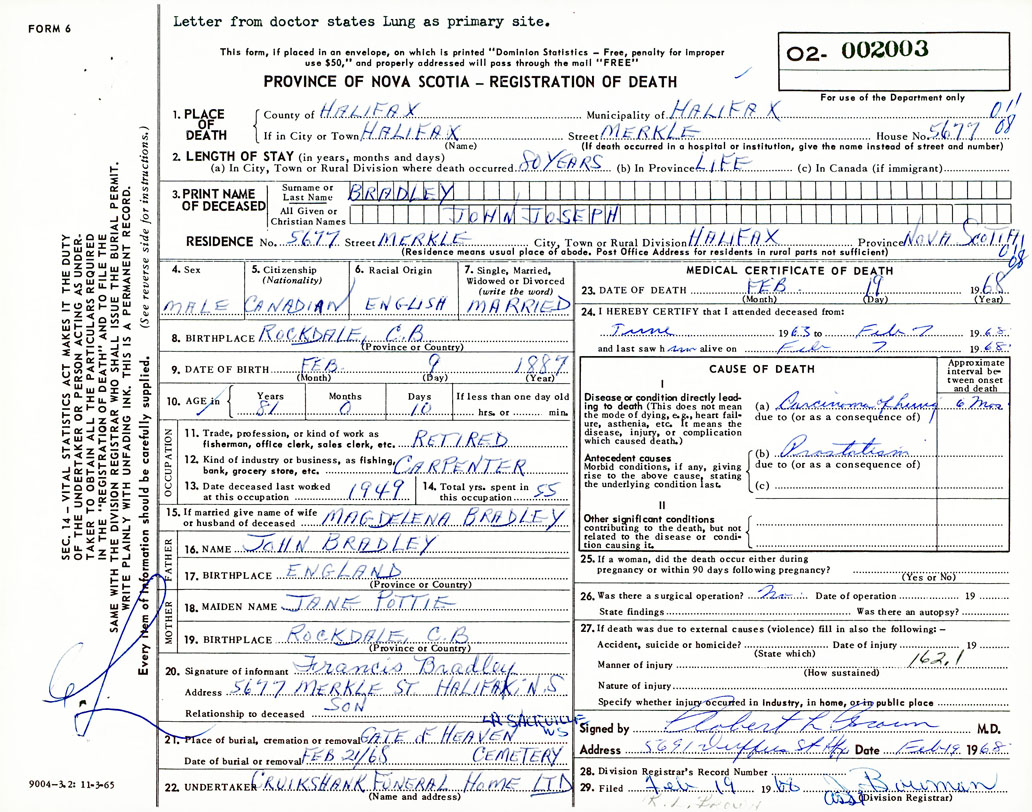 FORM 6
Letter from doctor states Lung as primary site.
This form, if placed in an envelope, on which is printed "Dominion Statistics – Free, penalty for improper
use $50," and properly addressed will pass through the mail "FREE"
PROVINCE OF NOVA SCOTIA – REGISTRATION OF DEATH
02- 002003
For use of the Department only
1. PLACE OF DEATH
County of HALIFAX Municipality of HALIFAX 011
If in City or Town HALIFAX Street MERKLE House No. 5677 08
(Name) (If death occurred in a hospital or institution, give the name instead of street and number)
2. LENGTH OF STAY (in years, months and days)
(a) In City, Town or Rural Division where death occurred 80 YEARS (b) In Province LIFE (c) In Canada (if immigrant)
3. PRINT NAME OF DECEASED
Surname or Last Name BRADLEY
All Given or Christian Names JOHN JOSEPH
RESIDENCE No. 5677 Street MERKLE City, Town or Rural Division HALIFAX Province NOVA SCOTIA
(Residence means usual place of abode. Post Office Address for residents in rural parts not sufficient) 08
4. Sex MALE
5. Citizenship (Nationality) CANADIAN
6. Racial Origin ENGLISH
7. Single, Married, Widowed or Divorced (write the word) MARRIED
8. BIRTHPLACE ROCKDALE, C.B
(Province or Country)
9. DATE OF BIRTH FEB. 9 1887
(Month) (Day) (Year)
10. AGE in Years Months Days If less than one day old
81 0 10 hrs. or min.
OCCUPATION
11. Trade, profession, or kind of work as
fisherman, office clerk, sales clerk, etc. RETIRED
12. Kind of industry or business, as fishing,
bank, grocery store, etc. CARPENTER
13. Date deceased last worked at this occupation 1949
14. Total yrs. spent in this occupation 55
15. If married give name of wife
or husband of deceased MAGDELENA BRADLEY
FATHER
16. NAME JOHN BRADLEY
17. BIRTHPLACE ENGLAND
(Province or Country)
MOTHER
18. MAIDEN NAME JANE POTTIE
19. BIRTHPLACE ROCKDALE, C.B
(Province or Country)
20. Signature of informant Francis Bradley
Address 5677 MERKLE ST HALIFAX, N.S
Relationship to deceased SON
SACKVILLE
NS
21. Place of burial, cremation or removal GATE of HEAVEN
Date of burial or removal FEB 21/68 CEMETERY
22. UNDERTAKER CRUIKSHANK FUNERAL HOME LTD
(Name and address)
MEDICAL CERTIFICATE OF DEATH
23. DATE OF DEATH FEB. 19 1968
(Month) (Day) (Year)
24. I HEREBY CERTIFY that I attended deceased from:
June 1963 to Feb 7 1968
and last saw him alive on Feb 7 1968
CAUSE OF DEATH
Approximate interval between onset and death
I
Disease or condition directly leading to death (This does not mean the mode of dying, e.g., heart failure, asthenia, etc. It means the disease, injury, or complication which caused death.)
(a) Carcinoma of lung 6 Mos
due to (or as a consequence of)
Antecedent causes
Morbid conditions, if any, giving rise to the above cause, stating the underlying condition last.
(b) Prostatism
due to (or as a consequence of)
(c)
II
Other significant conditions
contributing to the death, but not related to the disease or condition causing it.
25. If a woman, did the death occur either during
pregnancy or within 90 days following pregnancy?
(Yes or No)
26. Was there a surgical operation? No Date of operation 19
State findings Was there an autopsy?
27. If death was due to external causes (violence) fill in also the following: –
Accident, suicide or homicide? Date of injury 19
(State which)
Manner of injury 162.1
(How sustained)
Nature of injury
Specify whether injury occurred in Industry, in home, or in public place
Signed by Robert L M.D.
Address 5691 Duffus St Hfx Date Feb 19 1968
28. Division Registrar's Record Number
29. Filed Feb 19 1968 J. Bowman
Asst (Division Registrar)
SEC. 14 – VITAL STATISTICS ACT MAKES IT THE DUTY
OF THE UNDERTAKER OR PERSON ACTING AS UNDER-
TAKER TO OBTAIN ALL THE PARTICULARS REQUIRED
IN THE "REGISTRATION OF DEATH" AND TO FILE THE
SAME WITH THE DIVISION REGISTRAR WHO SHALL ISSUE THE BURIAL PERMIT.
WRITE PLAINLY WITH UNFADING INK. THIS IS A PERMANENT RECORD.
Every item of information should be carefully supplied. (See reverse side for instructions.)
9004-3.2: 11-3-65